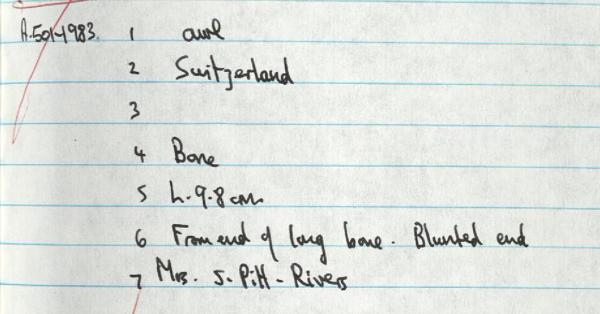 A.501-1983. 1 awl
2 Switzerland
3
4 Bone
5 L. 9.8 cm
6 From end of long bone. Blunted end
7 Mrs. S. Pitt-Rivers